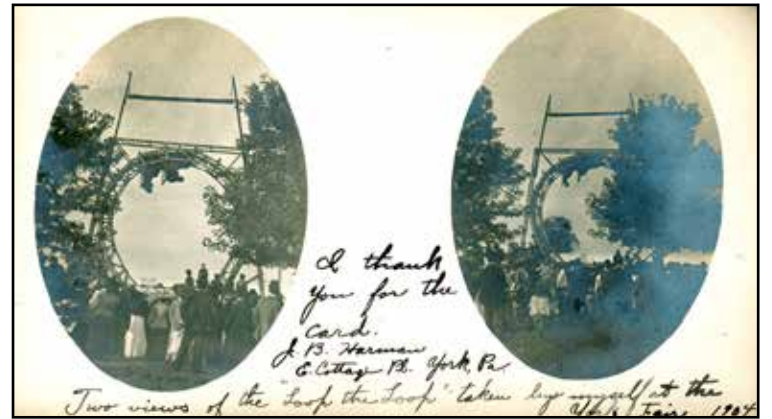 I thank
you for the
card.
J. B. Harman
E. Cottage Pl. York, Pa
Two views of the "Loop the Loop" taken by myself at the
York Fair 1904